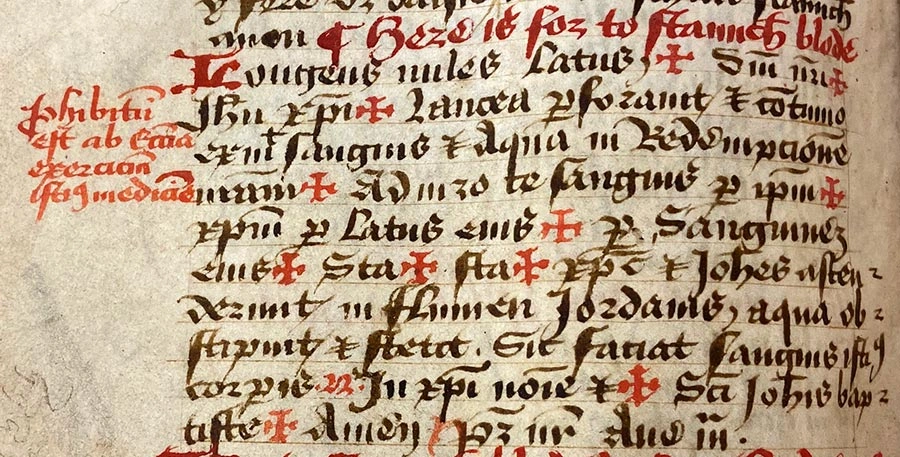 anon ¶ Here is for to staunch blode
Longeus miles Latus ✠ Dni nri ✠
Ihu xpi ✠ Lancea pforauit & cotinuo
exiuit sanguis & aqua in Redempcione
nram ✠ Adiuro te sanguis p ipm ✠
xpm p Latus eius ✠ p Sanguinez
eius ✠ Sta ✠ sta ✠ xpc & Johes ascen
derunt in flumen Jordanis, aqua ob
stipuit & stetit. Sic faciat sanguis isti9
corpis In xpi noie & ✠ Sci Johis bap
tiste ✠ Amen pr nr Aue m.
phibitu
est ab Eccia
exerciciu
isti9 medicie